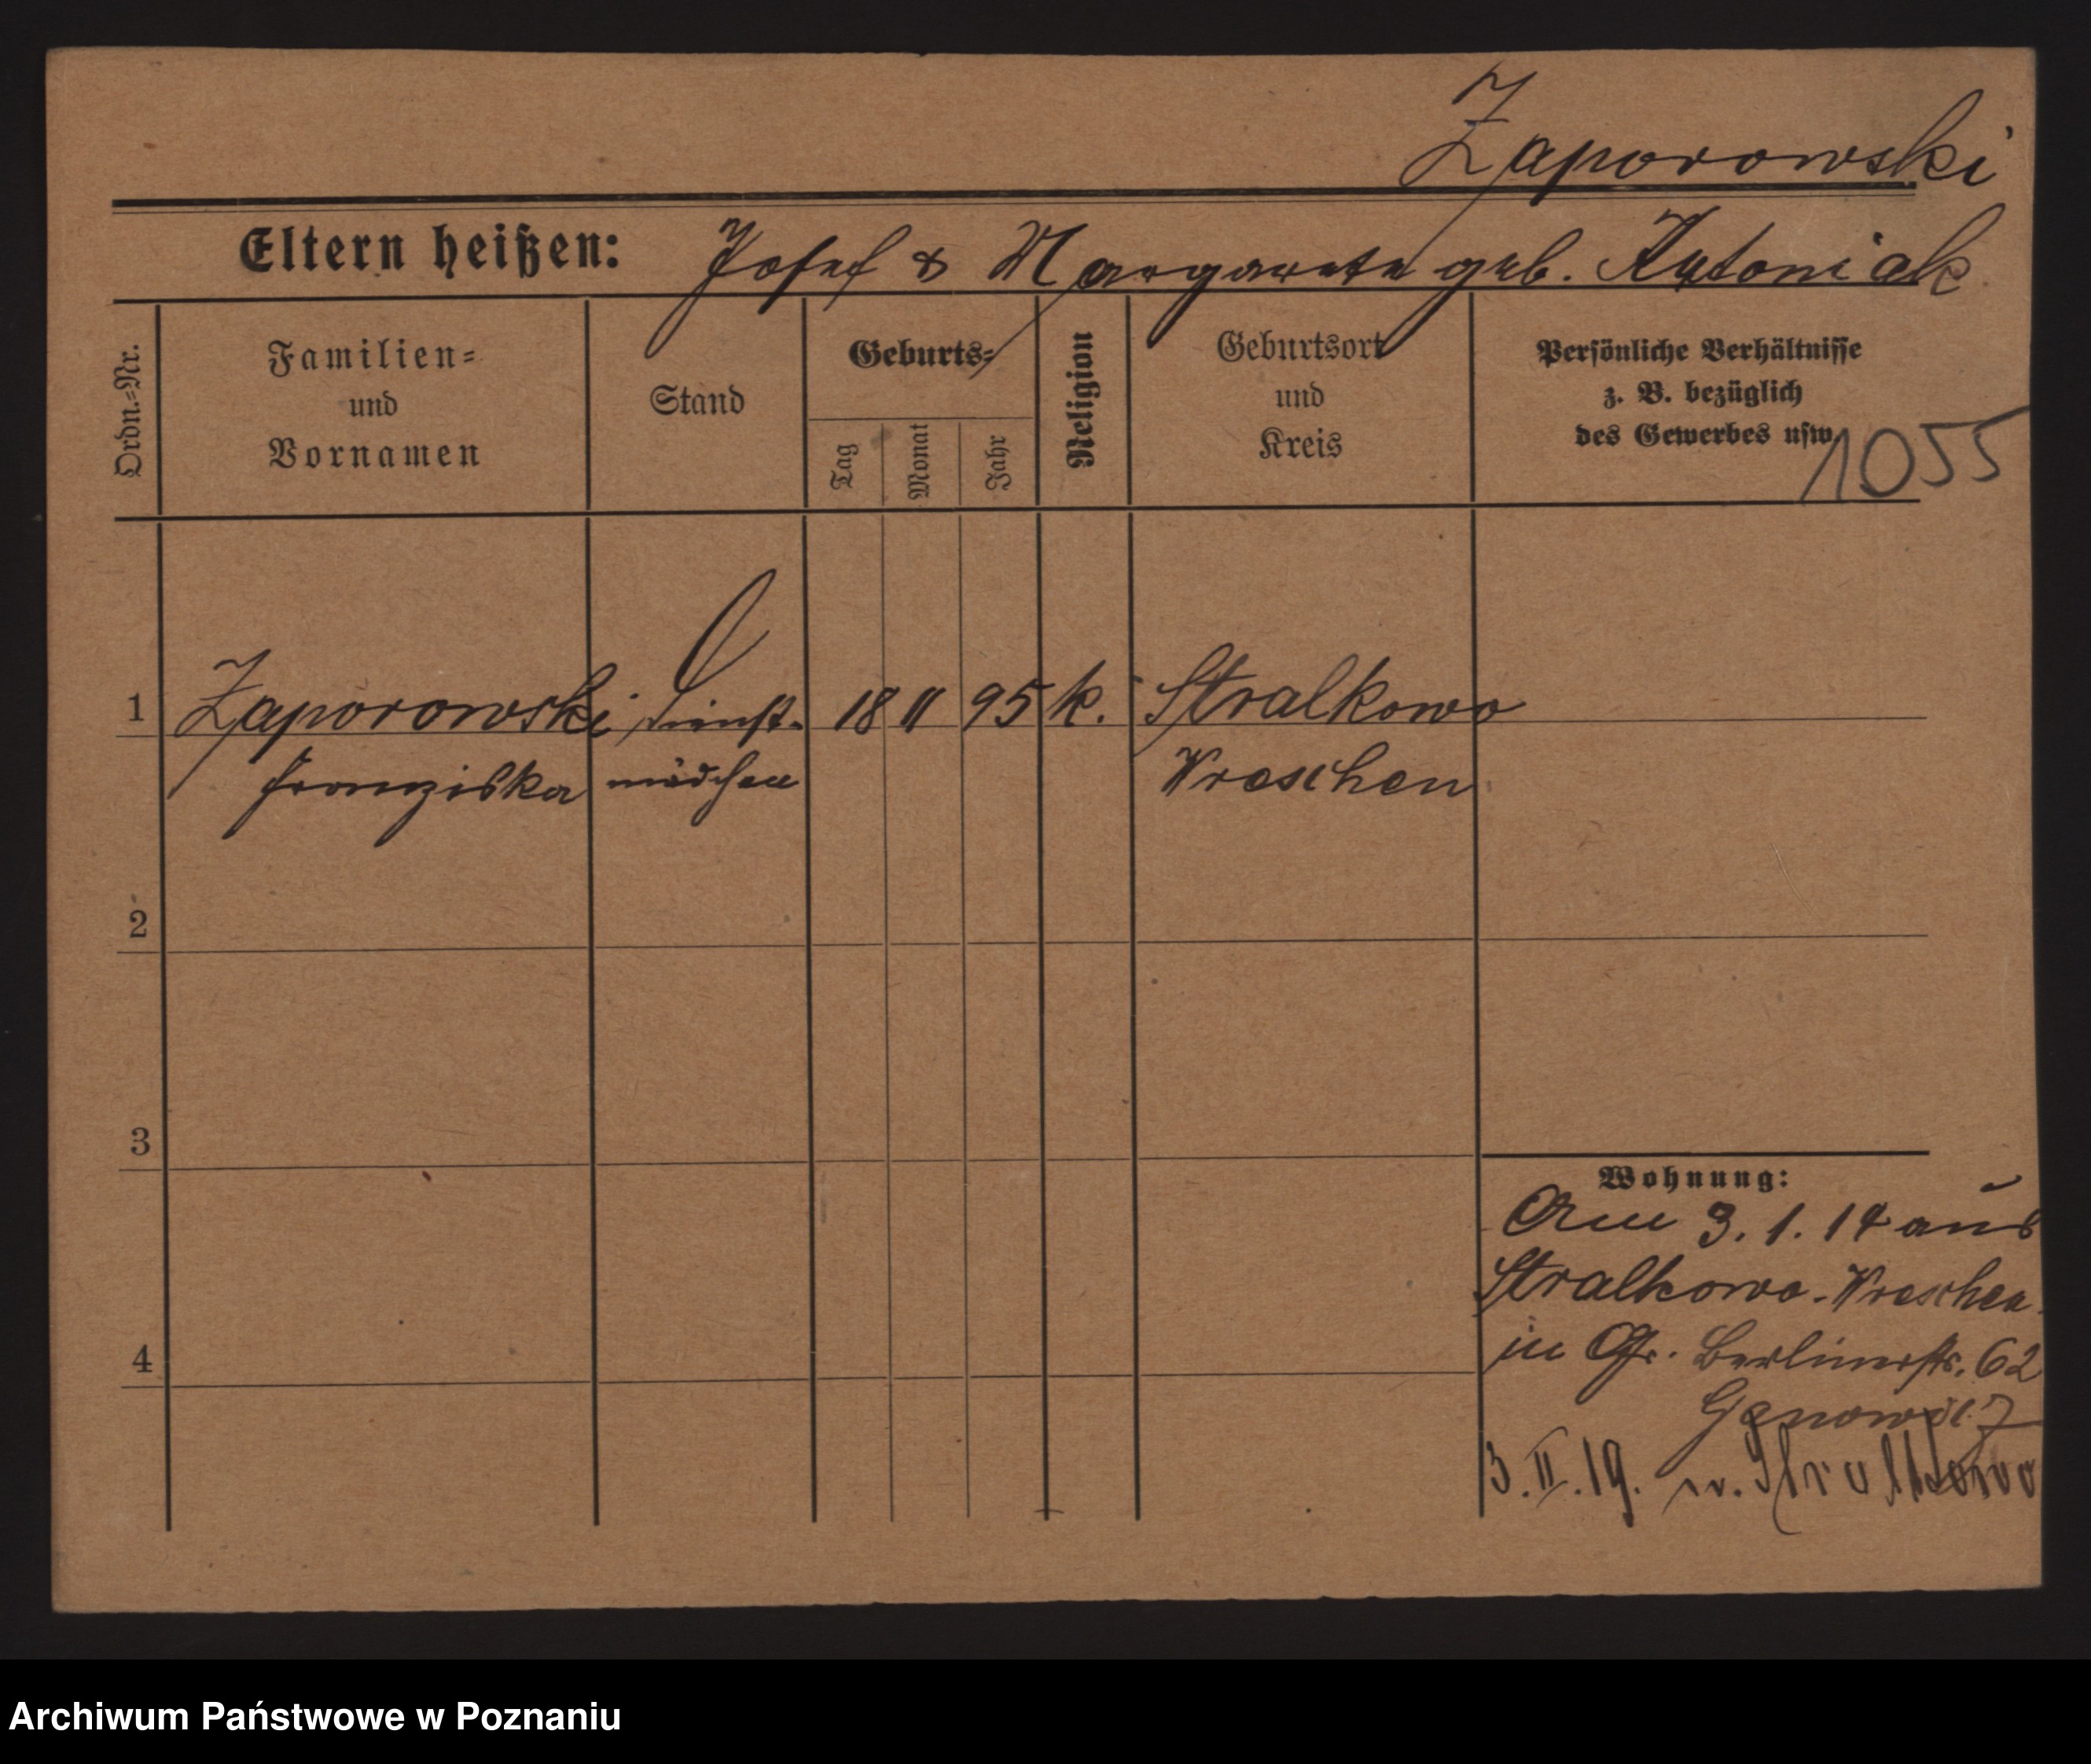 Zaporowski
Eltern heißen: Josef & Margarete geb. Antoniak
Ordn.-Nr.
Familien-
und
Vornamen
Stand
Geburts-
Tag
Monat
Jahr
Religion
Geburtsort
und
Kreis
Persönliche Verhältnisse
z. B. bezüglich
des Gewerbes usw.
1055
1 Zaporowski Dienst- 18 11 95 k. Stralkowo
Franziska mädchen Wreschen
2
3
4
Wohnung:
Am 3. 1. 14 aus
Stralkowo-Wreschen
in Gr. Berlinerstr. 62
3. II. 19. n. Stralkowo
Archiwum Państwowe w Poznaniu